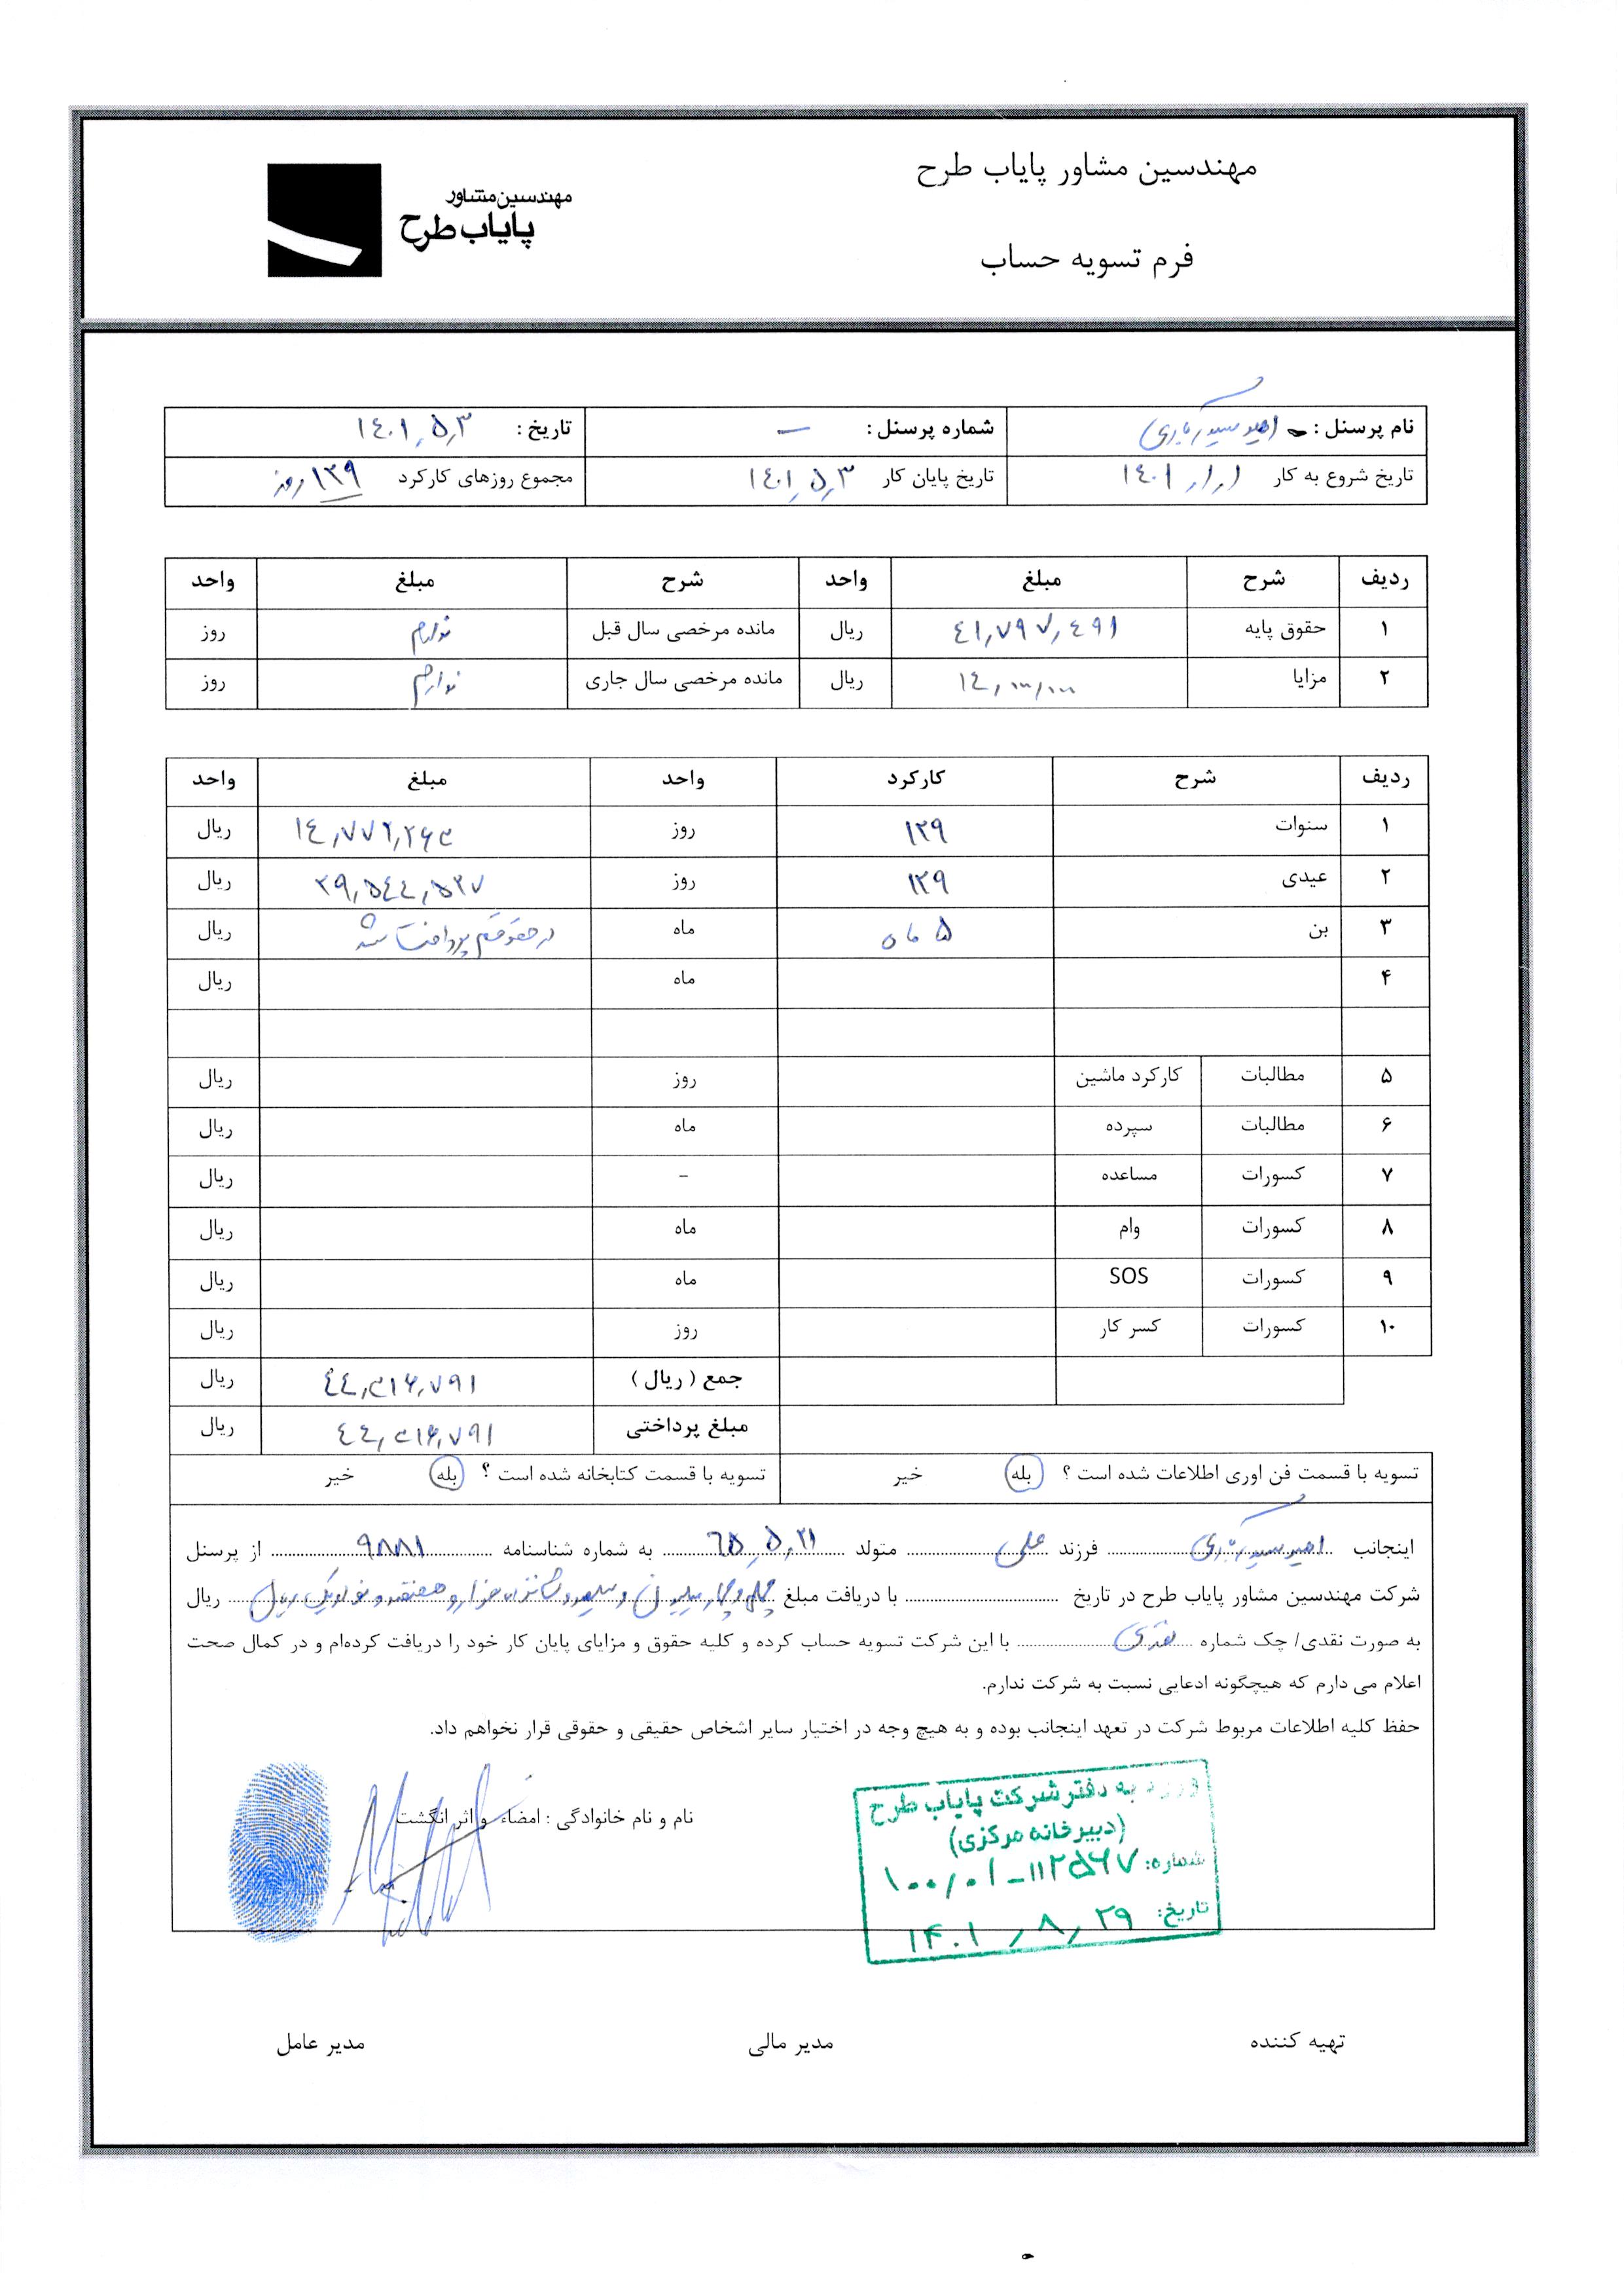 مهندسین مشاور پایاب طرح
مهندسین مشاور
پایاب طرح
فرم تسویه حساب
نام پرسنل : شماره پرسنل : – تاریخ : ١٤٠١,٥,٣
تاریخ شروع به کار ١٤٠١,١,١ تاریخ پایان کار ١٤٠١,٥,٣ مجموع روزهای کارکرد ۱۲۹ روز
ردیف شرح مبلغ واحد شرح مبلغ واحد
۱ حقوق پایه ٤١,٧٩٧,٤٩١ ریال مانده مرخصی سال قبل ندارم روز
۲ مزایا ١٤,٠٠٠,٠٠٠ ریال مانده مرخصی سال جاری ندارم روز
ردیف شرح کارکرد واحد مبلغ واحد
۱ سنوات ۱۲۹ روز ١٤,٧٧٢,٢٦٣ ریال
۲ عیدی ۱۲۹ روز ٢٩,٥٤٤,٥٢٧ ریال
۳ بن ۵ ماه ماه در حقوقم پرداخت شد ریال
۴ ماه ریال
۵ مطالبات کارکرد ماشین روز ریال
۶ مطالبات سپرده ماه ریال
۷ کسورات مساعده – ریال
۸ کسورات وام ماه ریال
۹ کسورات SOS ماه ریال
۱۰ کسورات کسر کار روز ریال
جمع ( ریال ) ٤٤,٣١٦,٧٩١ ریال
مبلغ پرداختی ٤٤,٣١٦,٧٩١ ریال
تسویه با قسمت فن اوری اطلاعات شده است ؟ بله خیر تسویه با قسمت کتابخانه شده است ؟ بله خیر
اینجانب فرزند علی متولد ٦٥,٥,٢١ به شماره شناسنامه ٩٨٨١ از پرسنل
شرکت مهندسین مشاور پایاب طرح در تاریخ با دریافت مبلغ چهل و چهار میلیون و سیصد و شانزده هزار و هفتصد و نود و یک ریال ریال
به صورت نقدی/ چک شماره نقدی با این شرکت تسویه حساب کرده و کلیه حقوق و مزایای پایان کار خود را دریافت کرده‌ام و در کمال صحت
اعلام می دارم که هیچگونه ادعایی نسبت به شرکت ندارم.
حفظ کلیه اطلاعات مربوط شرکت در تعهد اینجانب بوده و به هیچ وجه در اختیار سایر اشخاص حقیقی و حقوقی قرار نخواهم داد.
نام و نام خانوادگی : امضاء و اثر انگشت
به دفتر شرکت پایاب طرح
(دبیرخانه مرکزی)
شماره: ۱۰۰/۰۱-۱۱۲۵۶۷
تاریخ: ۱۴۰۱,۸,۲۹
تهیه کننده مدیر مالی مدیر عامل